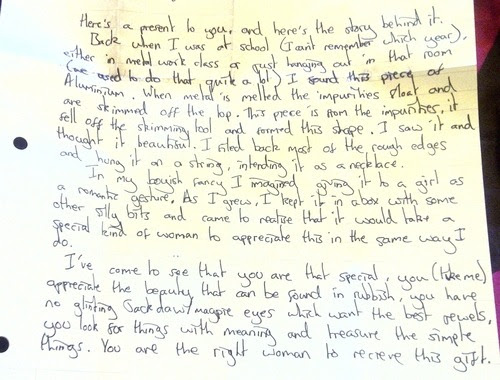 Here's a present to you, and here's the story behind it.
Back when I was at school (I cant remember which year),
either in metal work class or just hanging out in that room
(we used to do that quite a lot) I found this piece of
Aluminium. When metal is melted the impurities float and
are skimmed off the top. This piece is from the impurities, it
fell off the skimming tool and formed this shape. I saw it and
thought it beautiful. I filed back most of the rough edges
and hung it on a string, intending it as a necklace.
In my boyish fancy I imagined giving it to a girl as
a romantic gesture. As I grew, I kept it in a box with some
other silly bits and came to realise that it would take a
special kind of woman to appreciate this in the same way I
do.
I've come to see that you are that special, you (like me)
appreciate the beauty that can be found in rubbish, you have
no glinting Jackdaw/magpie eyes which want the best jewels,
you look for things with meaning and treasure the simple
things. You are the right woman to recieve this gift.